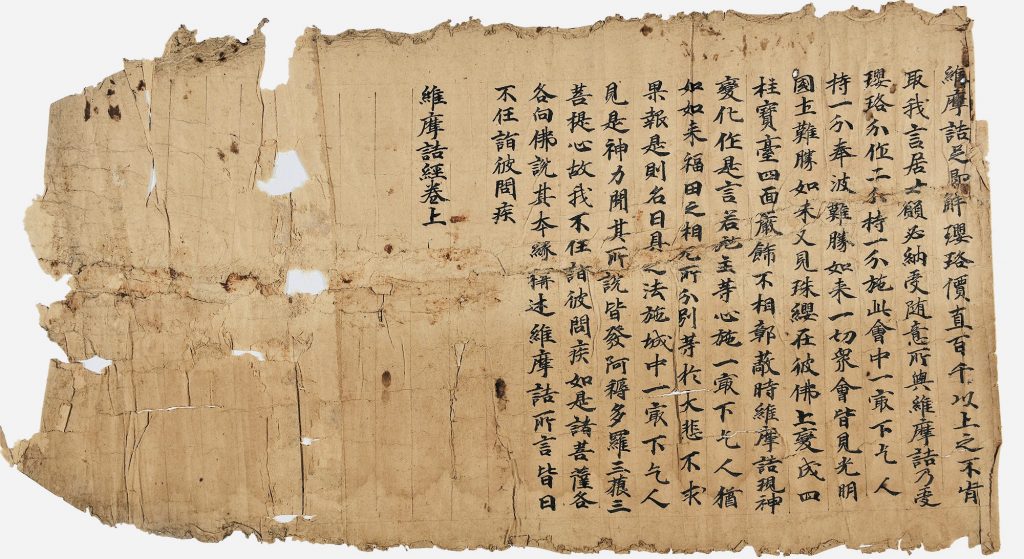 維摩詰足即解瓔珞價直百千以上之不肯
取我言居士願必納受随意所與維摩詰乃受
瓔珞分作二分持一分施此會中一冣下乞人
持一分奉波難勝如来一切衆會皆見光明
國土難勝如来又見珠纓在彼佛上變成四
柱寶臺四面嚴飾不相鄣蔽時維摩詰現神
變化作是言若施主等心施一冣下乞人猶
如如来福田之相无所分别等於大悲不求
果報是則名曰具足法施城中一冣下乞人
見是神力聞其所說皆發阿耨多羅三藐三
菩提心故我不任詣彼問疾如是諸菩薩各
各向佛說其本緣稱述維摩詰所言皆曰
不任詣彼問疾
維摩詰經卷上